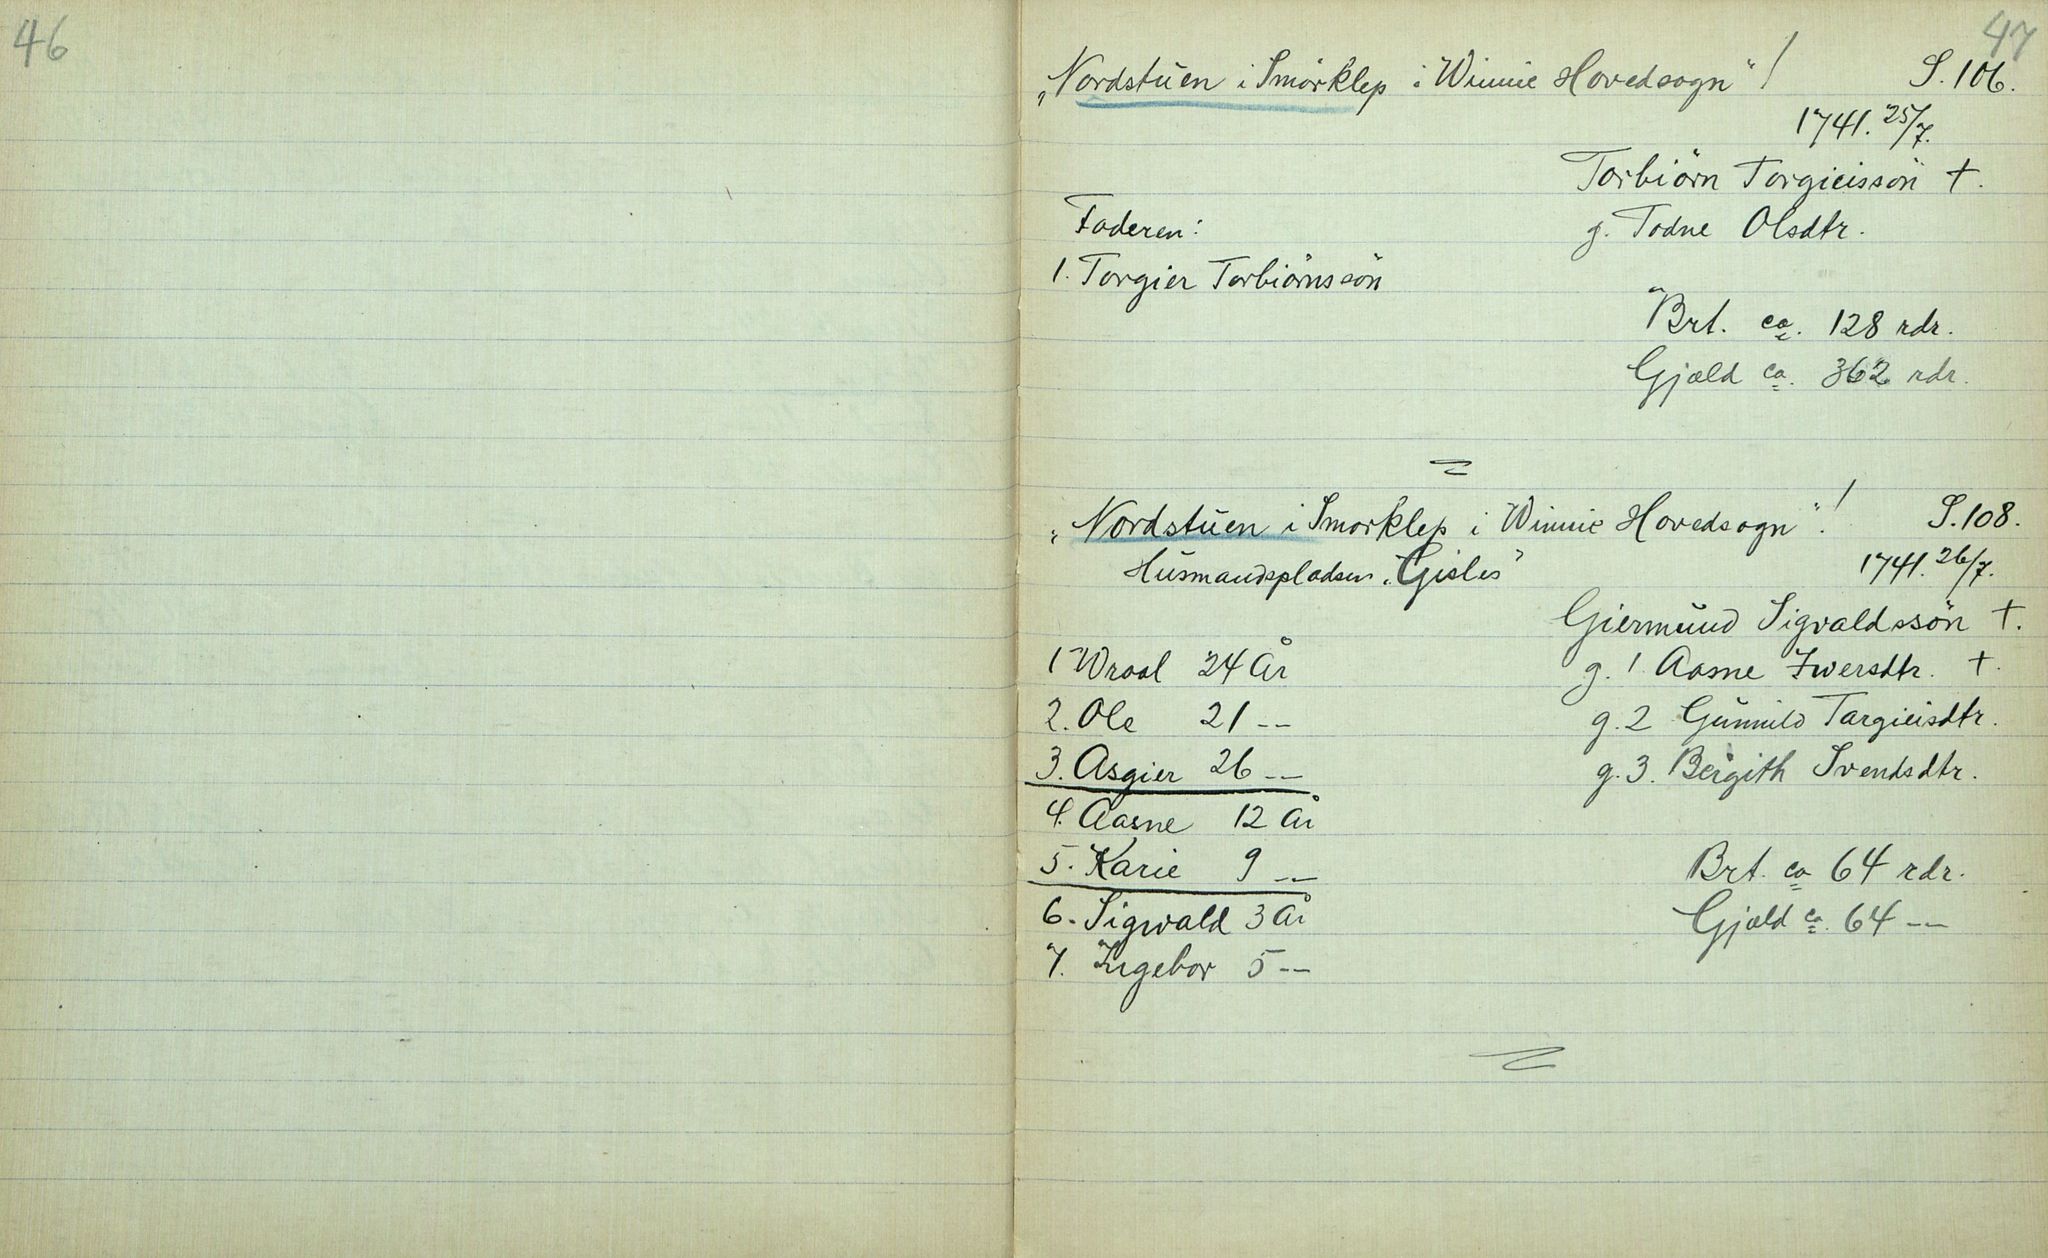 46
47
„Nordstuen i Smörklep i Winnie Hovedsogn“! S. 106.
1741. 25/7.
Torbiörn Torgieissön †.
Faderen:
g. Todne Olsdtr.
1. Torgier Torbiörnssön
Brt. ca. 128 rdr.
Gjæld ca. 362 rdr.
„Nordstuen i Smorklep i Winnie Hovedsogn“! S. 108.
Husmandspladsen „Gisles“ 1741. 26/7.
Giermund Sigvaldssön †.
1 Wraal 24 År g. 1 Aasne Iwersdtr. †.
2. Ole 21 -- g. 2 Gunnild Targieisdtr.
3. Asgier 26 -- g. 3. Bergith Svendsdtr.
4. Aasne 12 År
5. Karie 9 -- Brt. ca 64 rdr.
6. Sigwald 3 År Gjæld ca. 64 --
7. Ingebor 5 --